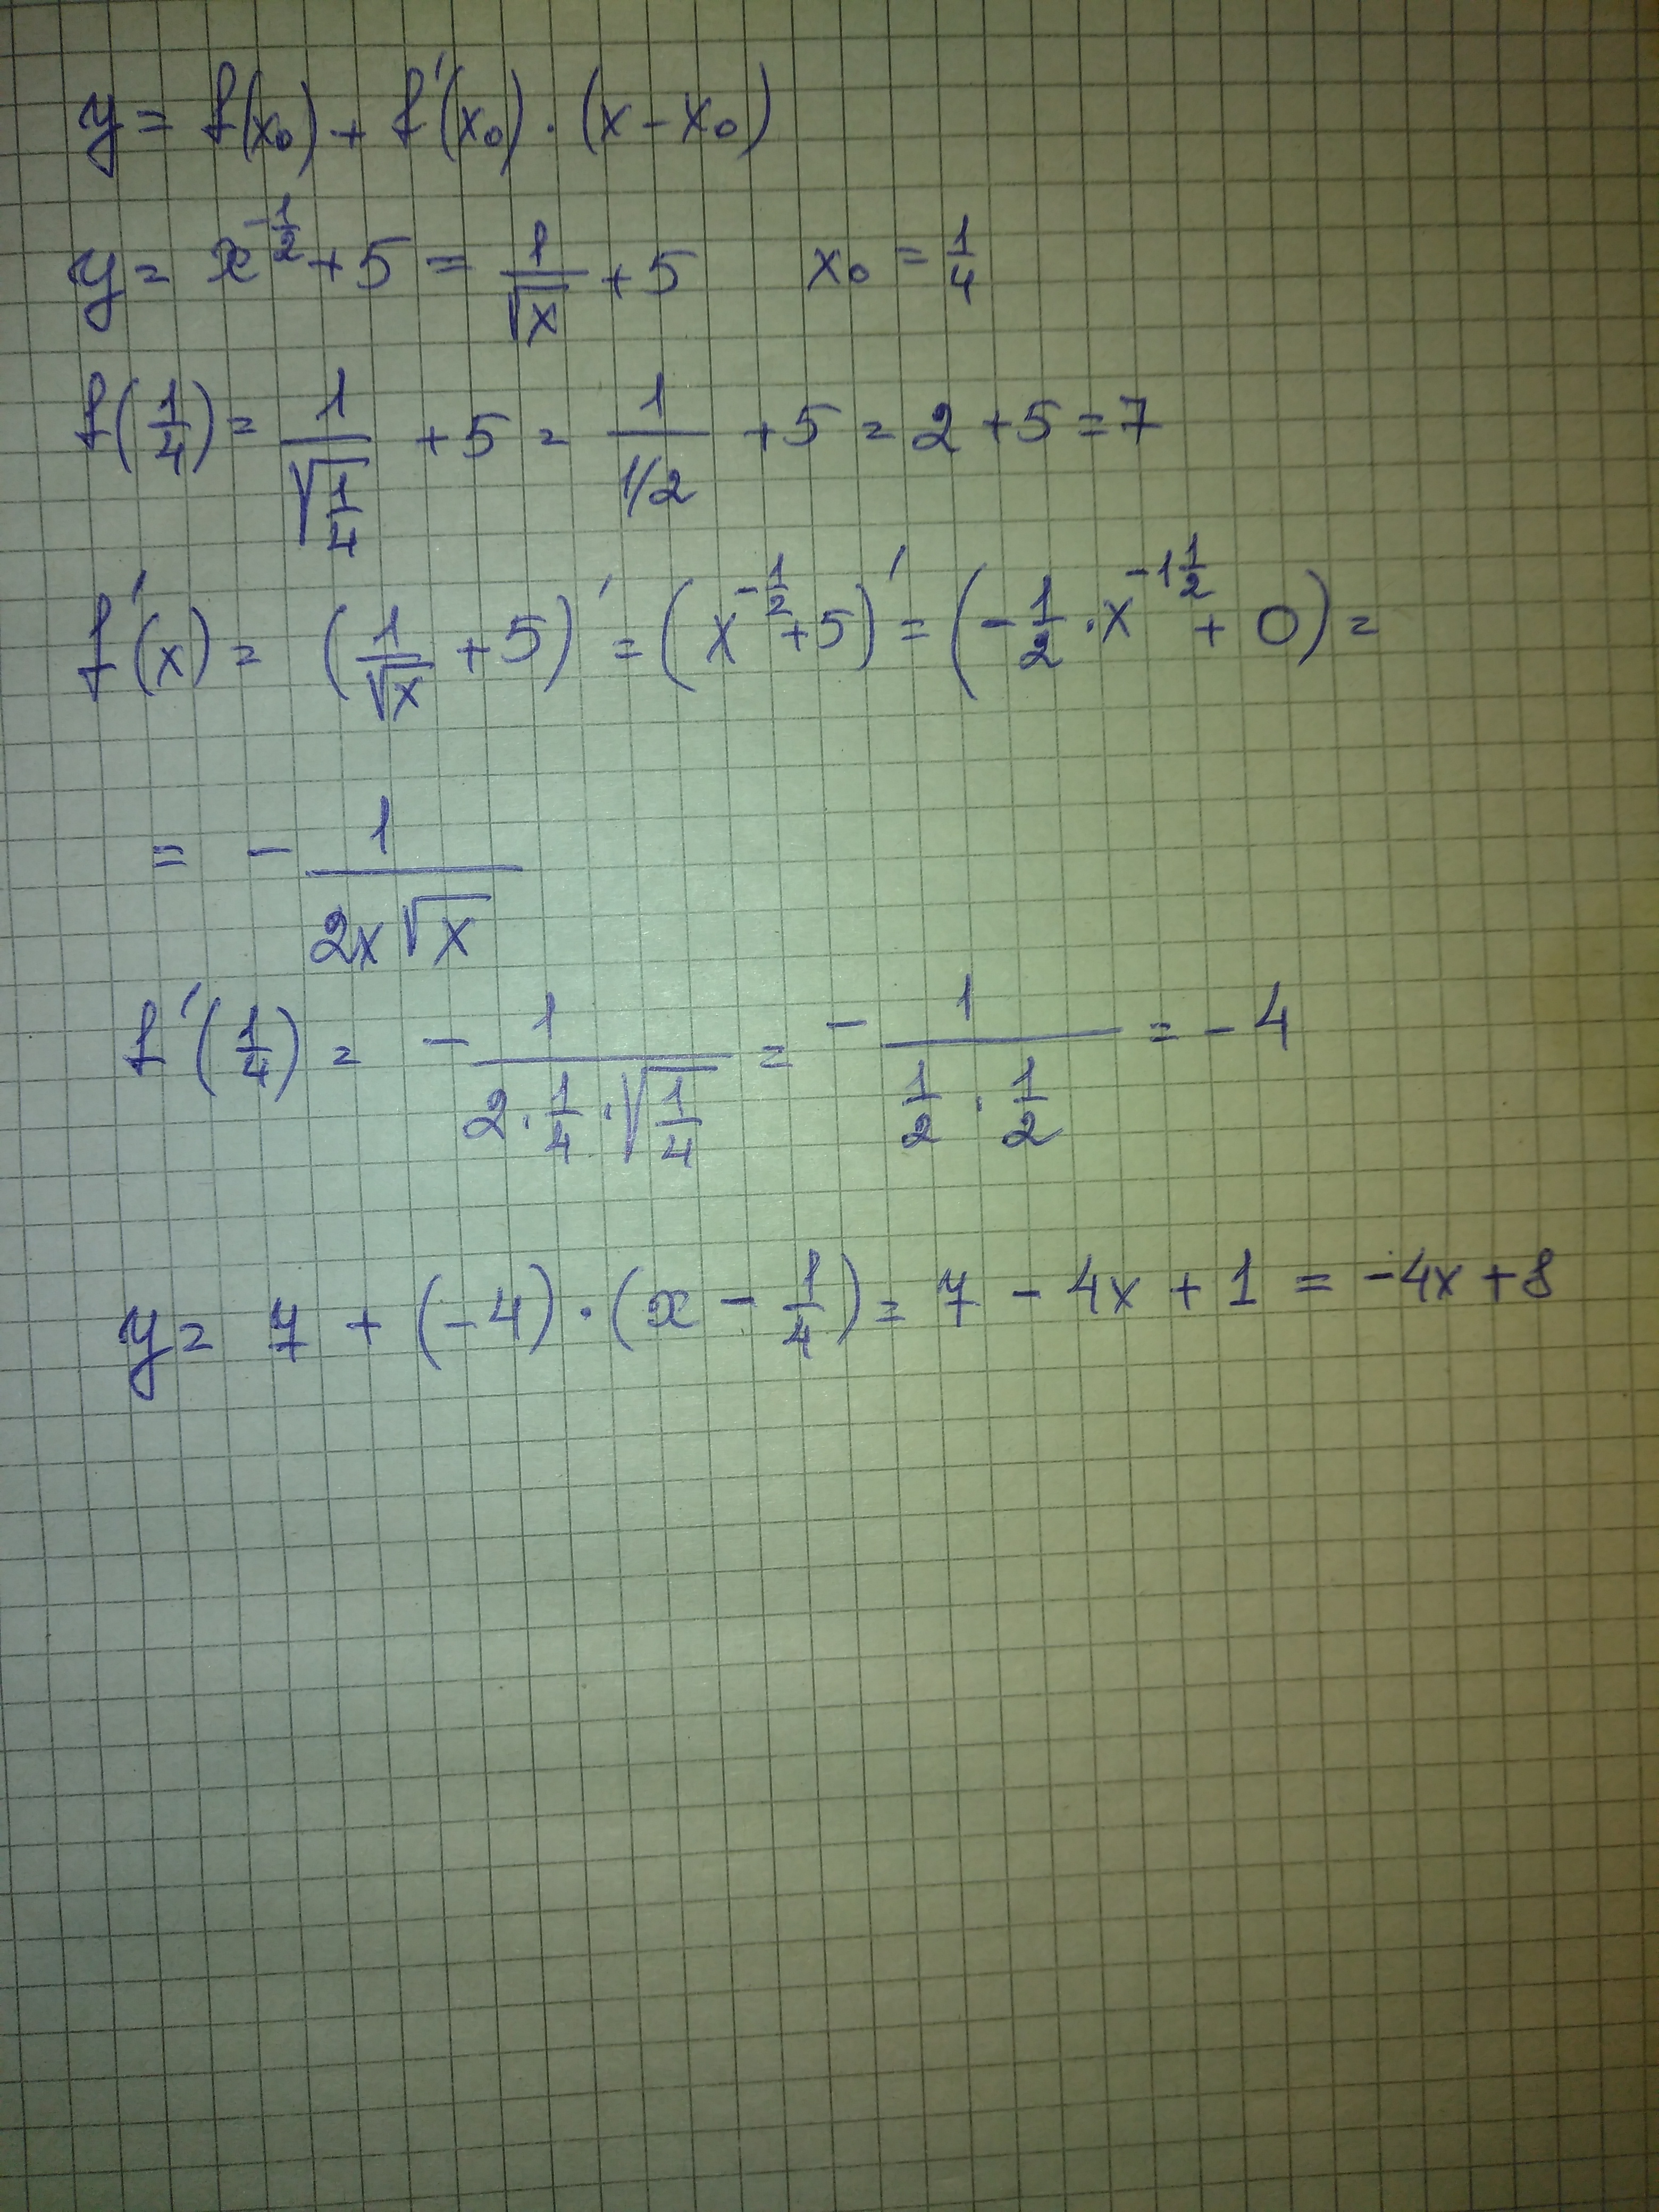 y = f(x₀) + f'(x₀) · (x - x₀)
y = x^(-1/2) + 5 = 1/√x + 5    x₀ = 1/4
f(1/4) = 1/√(1/4) + 5 = 1/(1/2) + 5 = 2 + 5 = 7
f'(x) = (1/√x + 5)' = (x^(-1/2) + 5)' = (-1/2 · x^(-1 1/2) + 0) =
= - 1/(2x√x)
f'(1/4) = - 1/(2 · 1/4 · √(1/4)) = - 1/(1/2 · 1/2) = - 4
y = 7 + (-4) · (x - 1/4) = 7 - 4x + 1 = -4x + 8